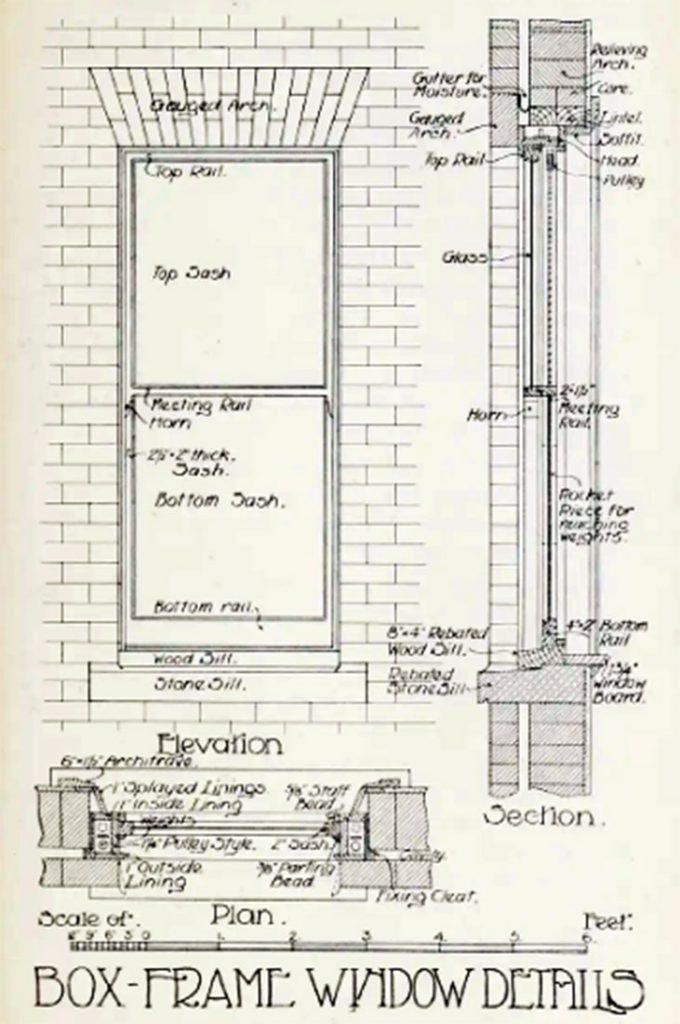 Gauged Arch.
Top Rail.
Top Sash
Meeting Rail
Horn
thick.
Sash.
Bottom Sash.
Bottom rail.
Wood Sill.
Stone Sill.
Elevation
Relieving
Arch.
Core.
Gutter for
Moisture.
Lintel.
Gauged
Arch.
Soffit.
Head.
Top Rail
Pulley
Glass
Horn
Meeting
Rail.
Pocket
Piece for
reaching
weights.
8"×4" Rebated
Wood Sill.
4"×2" Bottom
Rail
Rebated
Stone Sill
Window
Board.
Section.
6"×1½" Architrave.
1" Splayed Linings
1" Inside Lining
⅝" Staff
Bead.
Weights
1¼" Pulley Style.
2" Sash.
Cavity.
1" Outside
Lining
⅜" Parting
Bead.
Fixing Cleat.
Plan.
Scale of.
Feet.
12" 9" 6" 3" 0 1. 2. 3 4. 5. 6.
BOX-FRAME WINDOW DETAILS